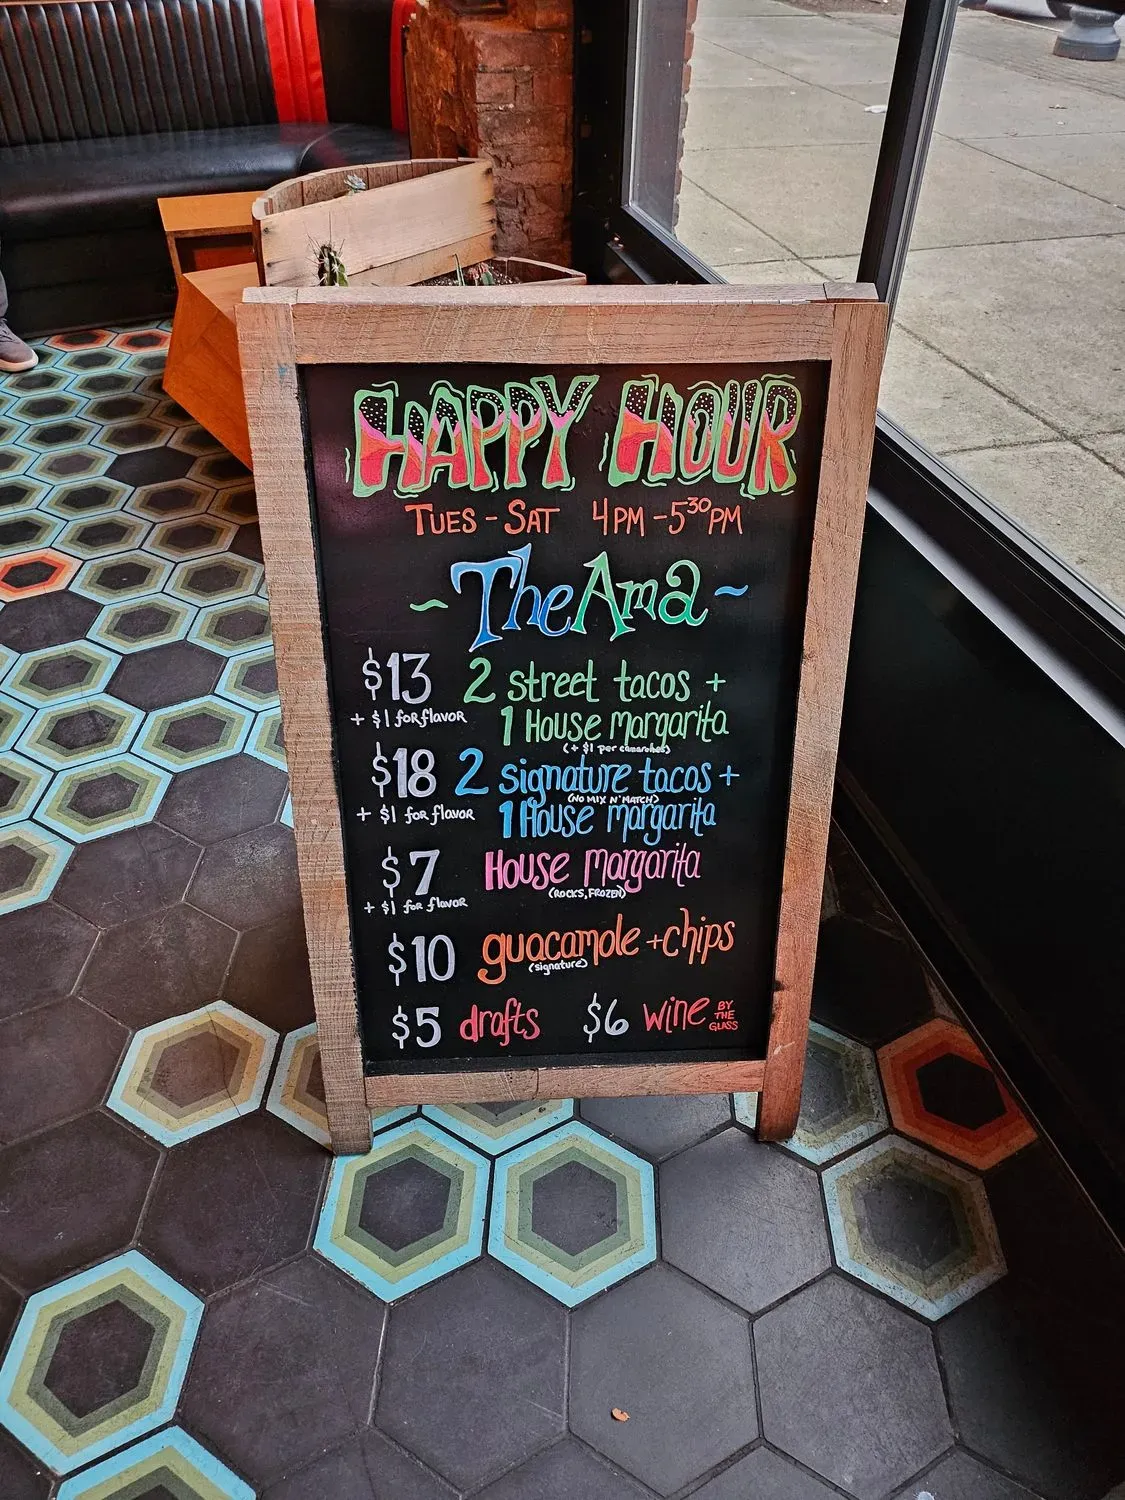 HAPPY HOUR
TUES - SAT 4PM - 530PM
~ The Ama ~
$13 2 street tacos +
+ $1 for flavor 1 House margarita
(+ $1 per camarones)
$18 2 signature tacos +
(NO MIX N' MATCH)
+ $1 for flavor 1 House margarita
$7 House margarita
+ $1 for flavor (ROCKS, FROZEN)
$10 guacamole + chips
(signature)
$5 drafts $6 wine BY THE GLASS